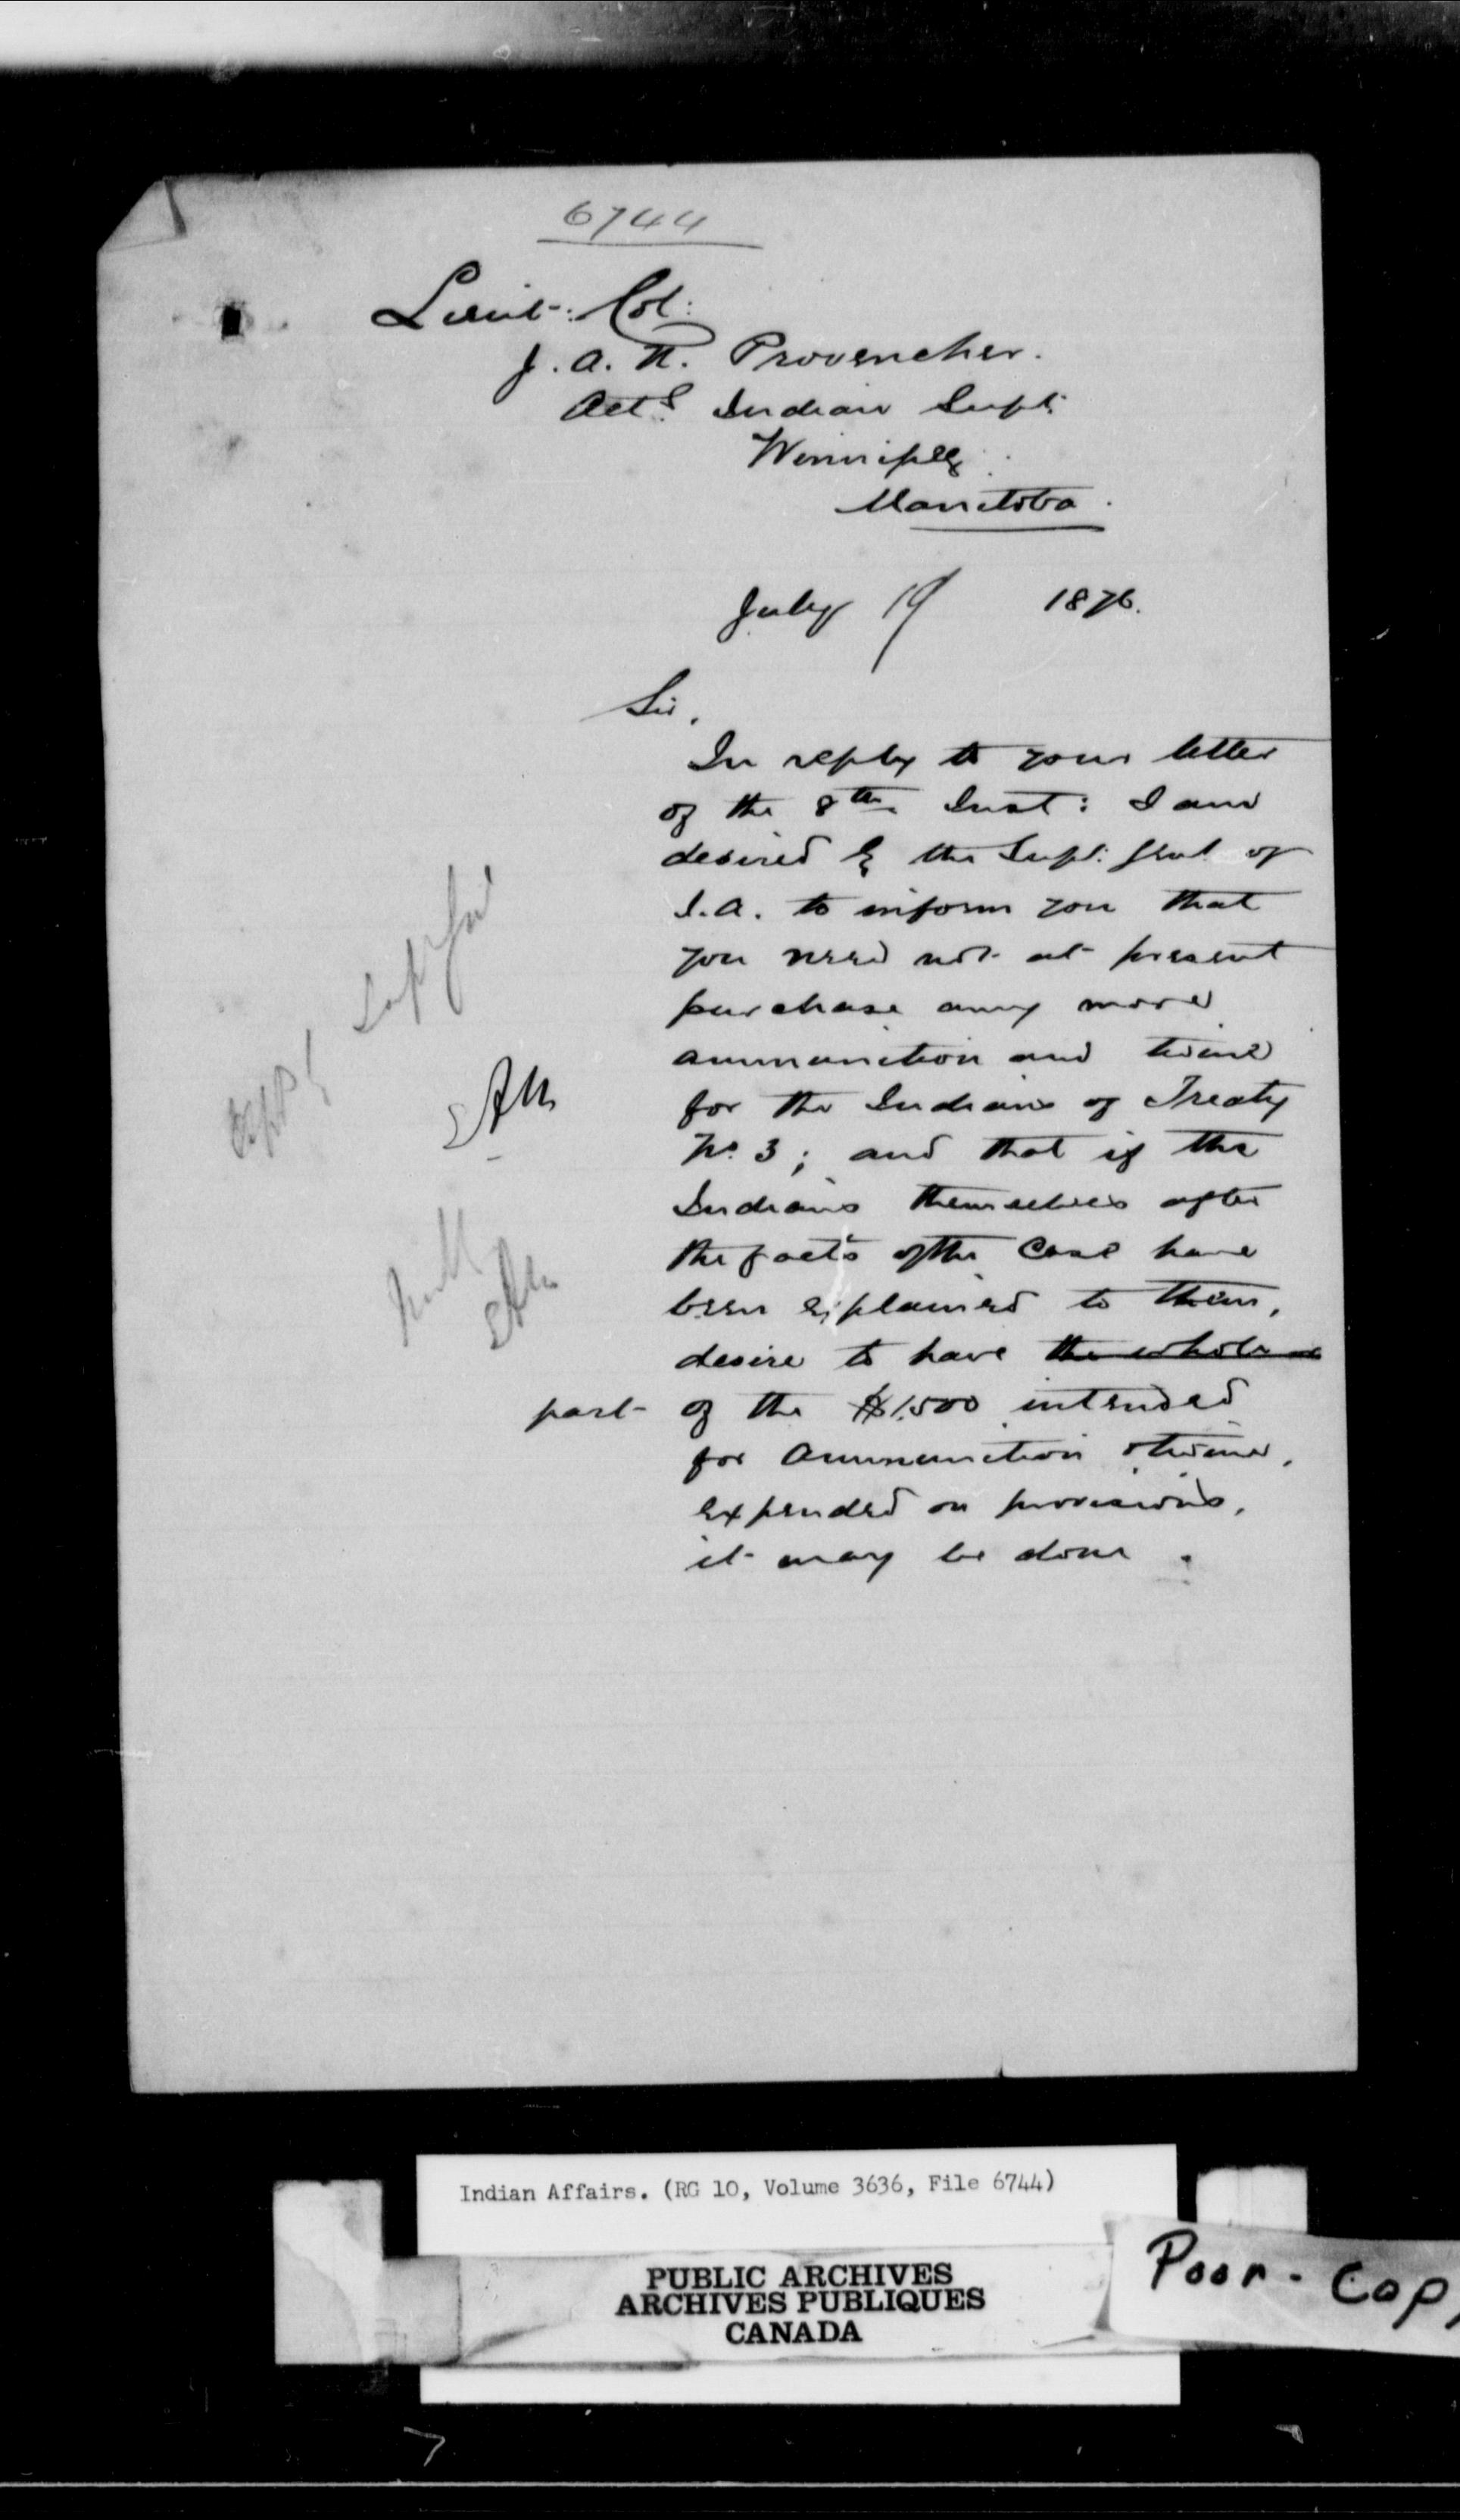 6744
Lieut: Col:
J. A. N. Provencher.
Actg Indian Supt:
Winnipeg.
Manitoba.
July 19 1876.
Sir,
In reply to your letter
of the 8th Inst: I am
desired by the Supt: Genl of
I. A. to inform you that
you need not at present
purchase any more
ammunition and twine
for the Indians of Treaty
No. 3; and that if the
Indians themselves after
the facts of the case have
been explained to them,
desire to have the whole
part of the $1,500 intended
for ammunition & twine,
expended on provisions,
it may be done.
Indian Affairs. (RG 10, Volume 3636, File 6744)
PUBLIC ARCHIVES
ARCHIVES PUBLIQUES
CANADA
Poor - Cop